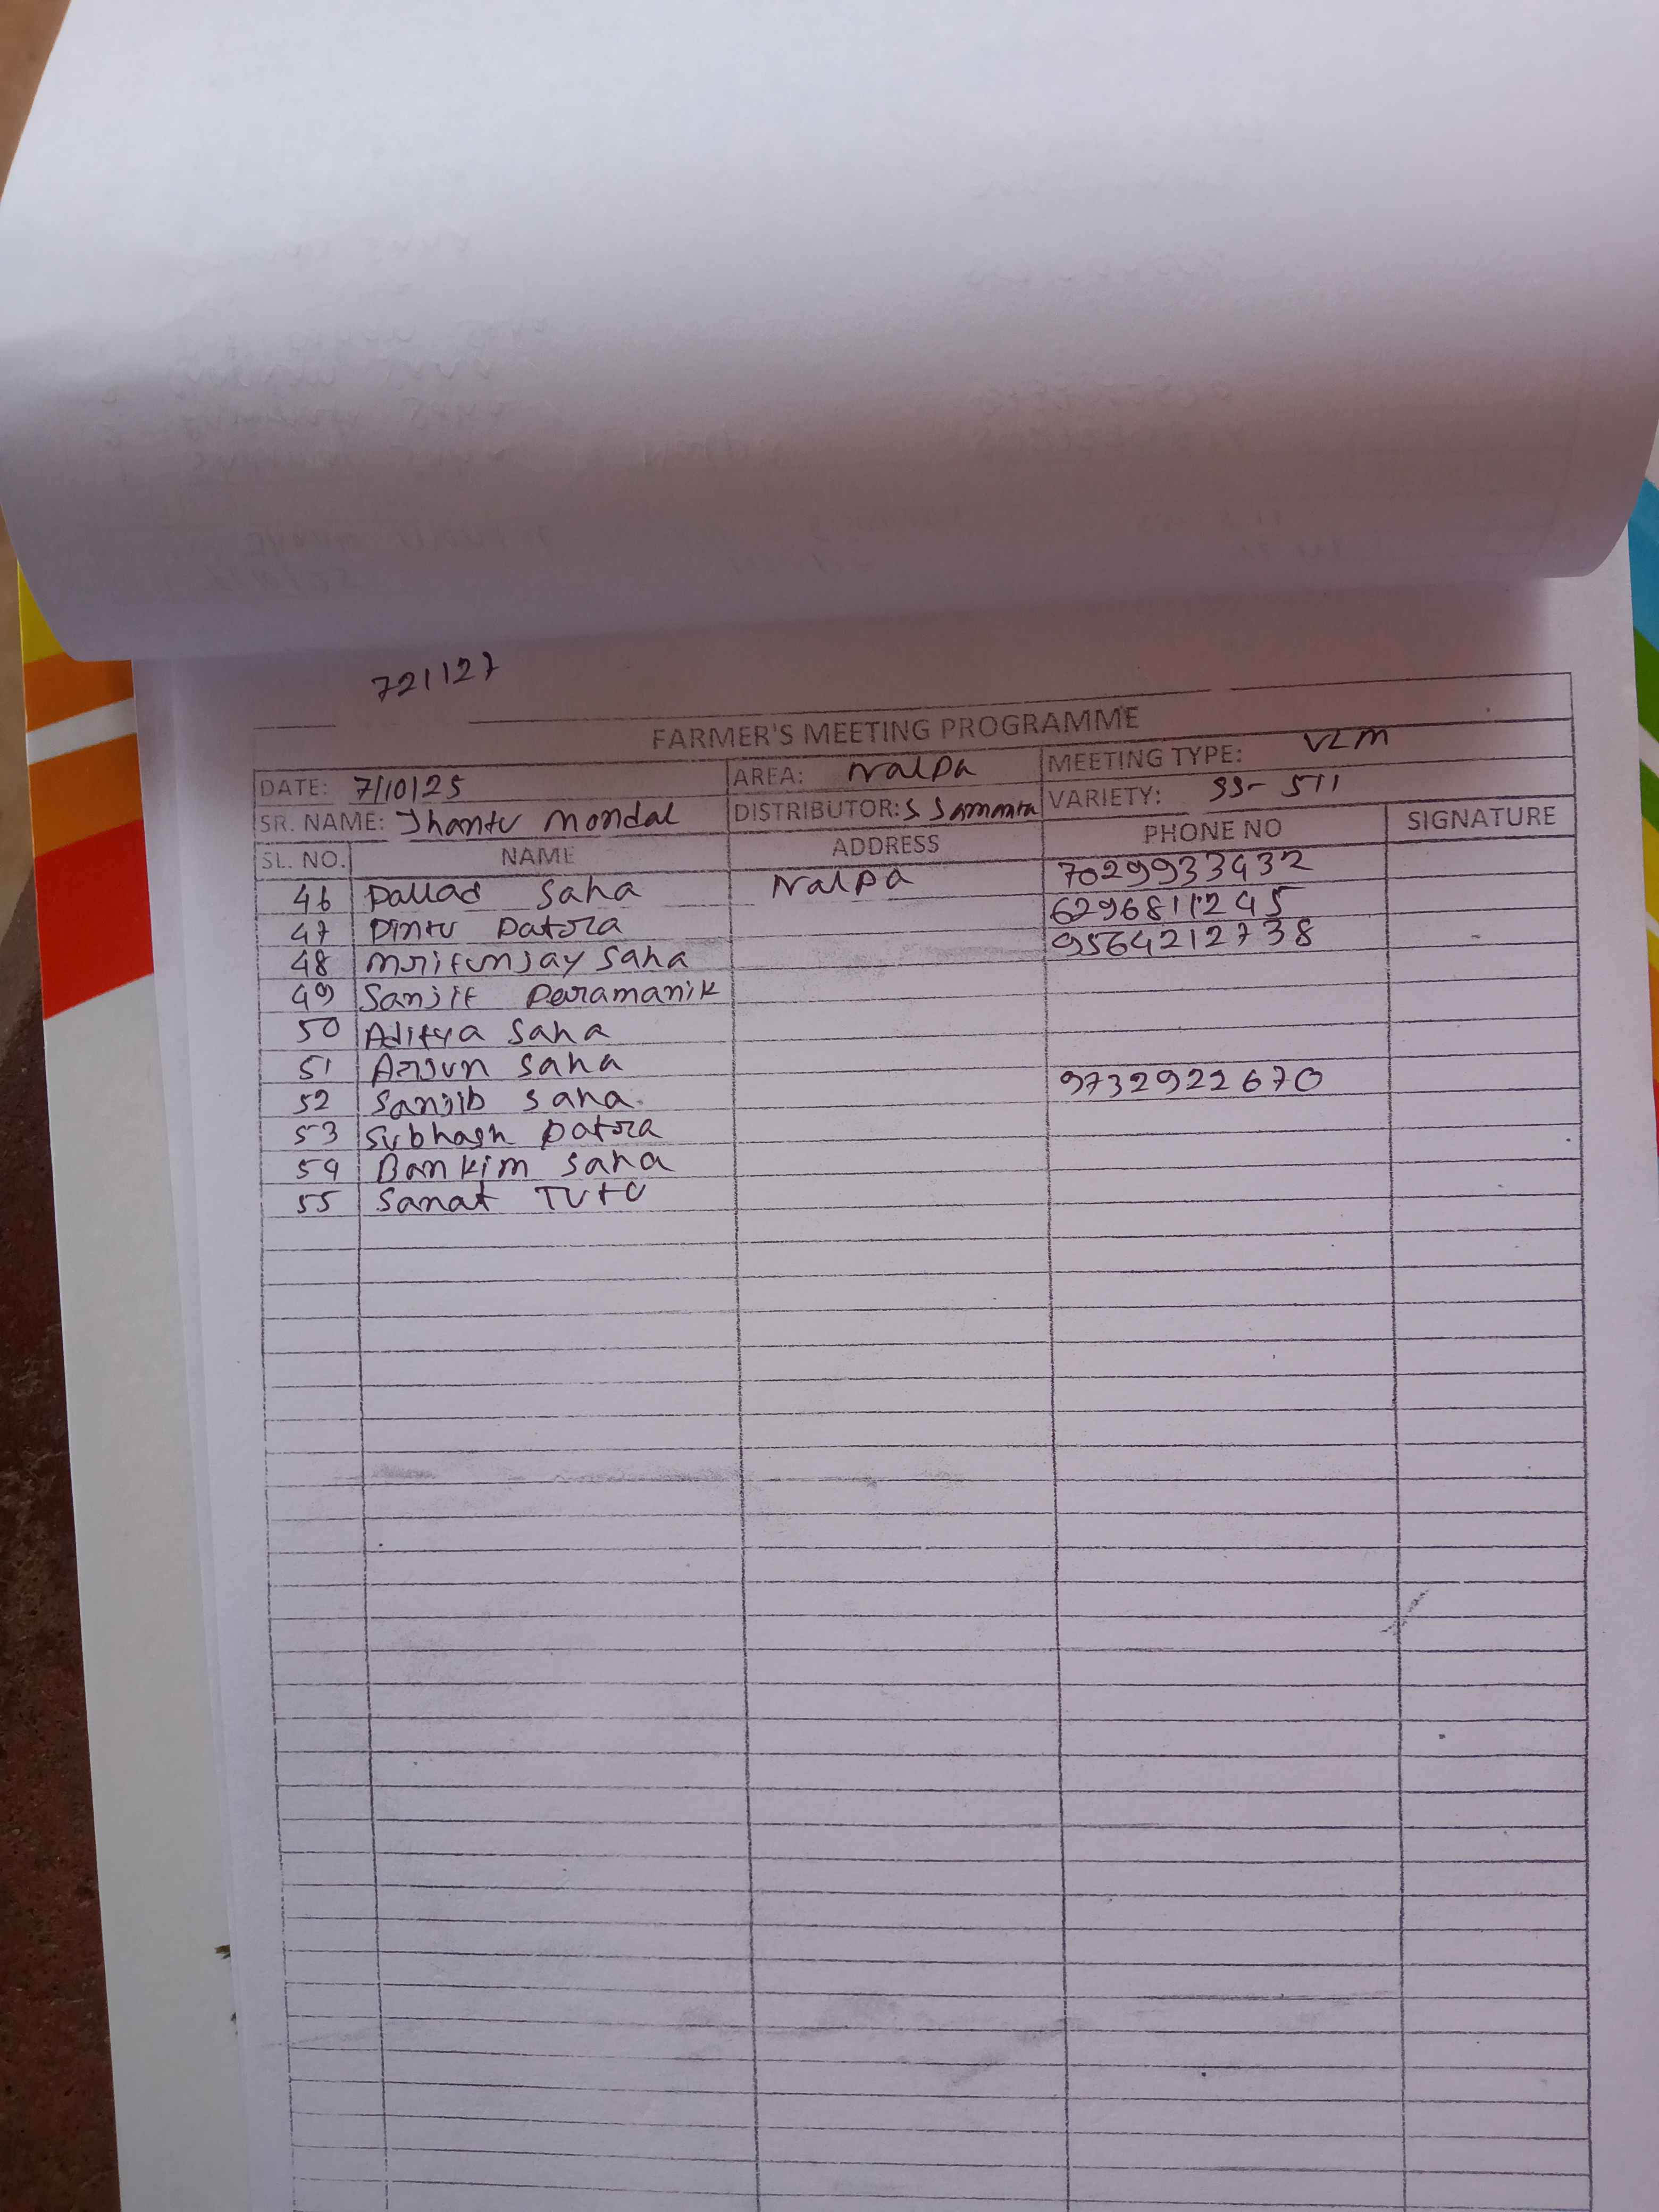 721127
FARMER'S MEETING PROGRAMME
DATE: 7/10/25 AREA: Nalpa MEETING TYPE: VLM
SR. NAME: Jhantu Mondal DISTRIBUTOR: S Samanta VARIETY: SS-511
SL. NO. NAME ADDRESS PHONE NO SIGNATURE
46 Pallab Saha Nalpa 7029933432
47 Pintu Patra 6296811245
48 Mritunjay Saha 9564212738
49 Sanjit Paramanik
50 Aditya Saha
51 Arjun Saha
52 Sanjib Saha 9732922670
53 Subhash Patra
54 Bankim Saha
55 Sanat Tutu